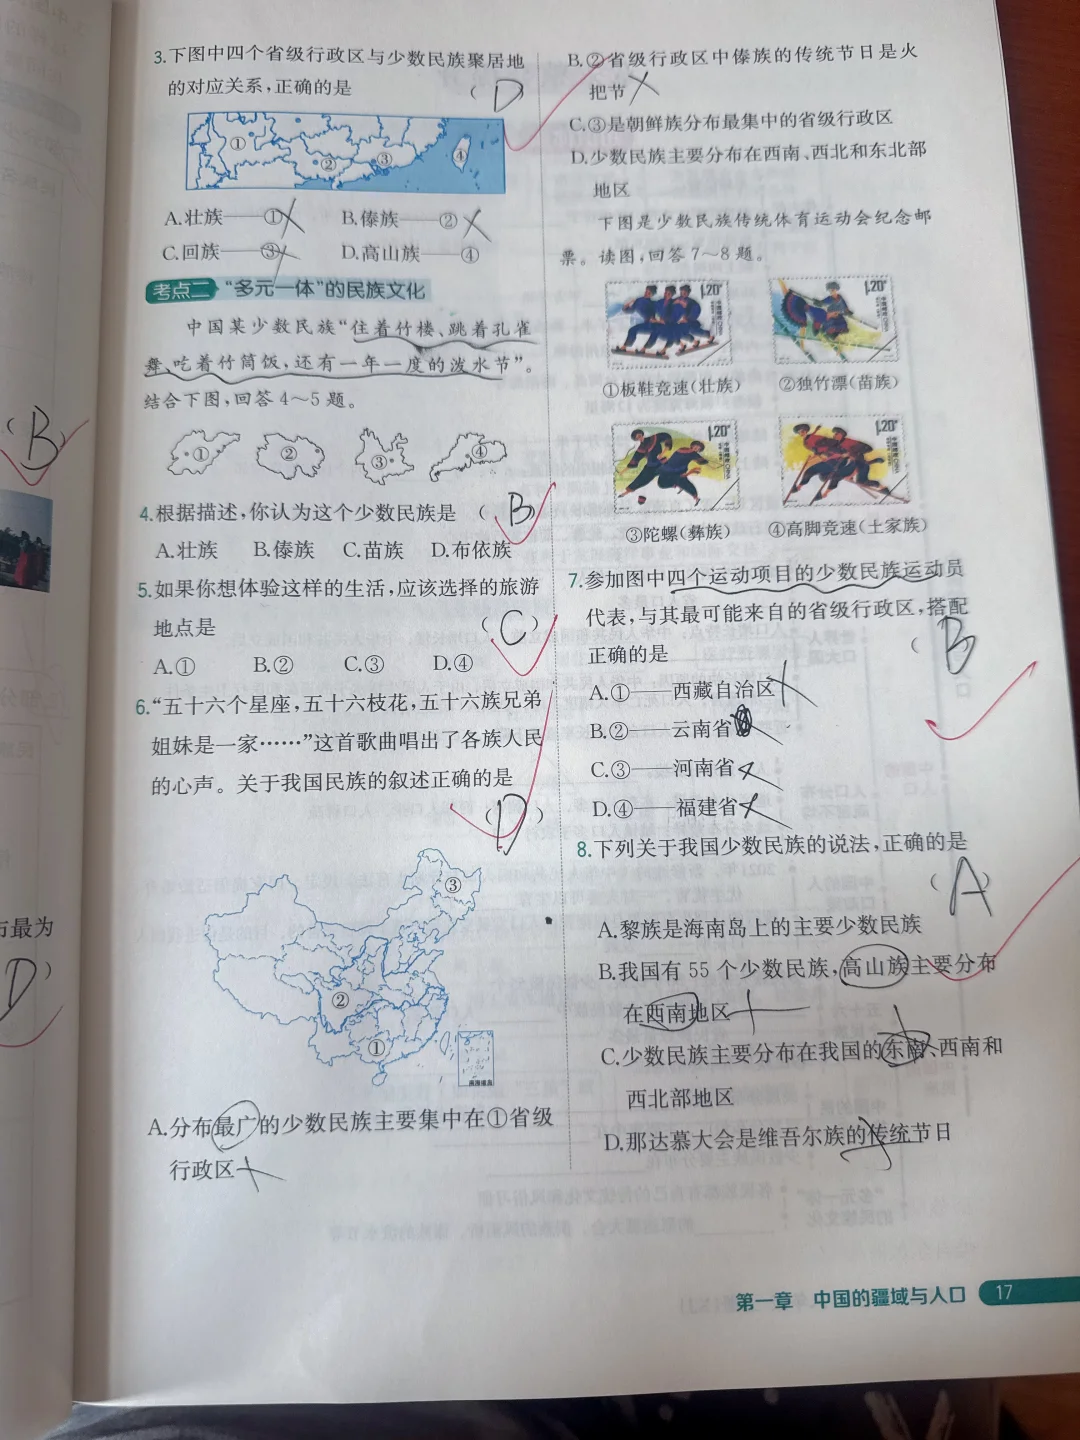 3.下图中四个省级行政区与少数民族聚居地
的对应关系,正确的是
( D )
①
②
③
④
A.壮族——①
B.傣族——②
C.回族——③
D.高山族——④
考点二 “多元一体”的民族文化
中国某少数民族“住着竹楼、跳着孔雀
舞、吃着竹筒饭,还有一年一度的泼水节”。
结合下图,回答4～5题。
①
②
③
④
4.根据描述,你认为这个少数民族是 ( B )
A.壮族 B.傣族 C.苗族 D.布依族
5.如果你想体验这样的生活,应该选择的旅游
地点是 ( C )
A.① B.② C.③ D.④
6.“五十六个星座,五十六枝花,五十六族兄弟
姐妹是一家……”这首歌曲唱出了各族人民
的心声。关于我国民族的叙述正确的是
( D )
③
②
①
南海诸岛
A.分布最广的少数民族主要集中在①省级
行政区
B.②省级行政区中傣族的传统节日是火
把节
C.③是朝鲜族分布最集中的省级行政区
D.少数民族主要分布在西南、西北和东北部
地区
下图是少数民族传统体育运动会纪念邮
票。读图,回答7～8题。
1.20
1.20
①板鞋竞速(壮族) ②独竹漂(苗族)
1.20
1.20
③陀螺(彝族) ④高脚竞速(土家族)
7.参加图中四个运动项目的少数民族运动员
代表,与其最可能来自的省级行政区,搭配
正确的是 ( B )
A.①——西藏自治区
B.②——云南省
C.③——河南省
D.④——福建省
8.下列关于我国少数民族的说法,正确的是
( A )
A.黎族是海南岛上的主要少数民族
B.我国有55个少数民族,高山族主要分布
在西南地区
C.少数民族主要分布在我国的东南、西南和
西北部地区
D.那达慕大会是维吾尔族的传统节日
第一章 中国的疆域与人口 17
( B )
布最为
D )